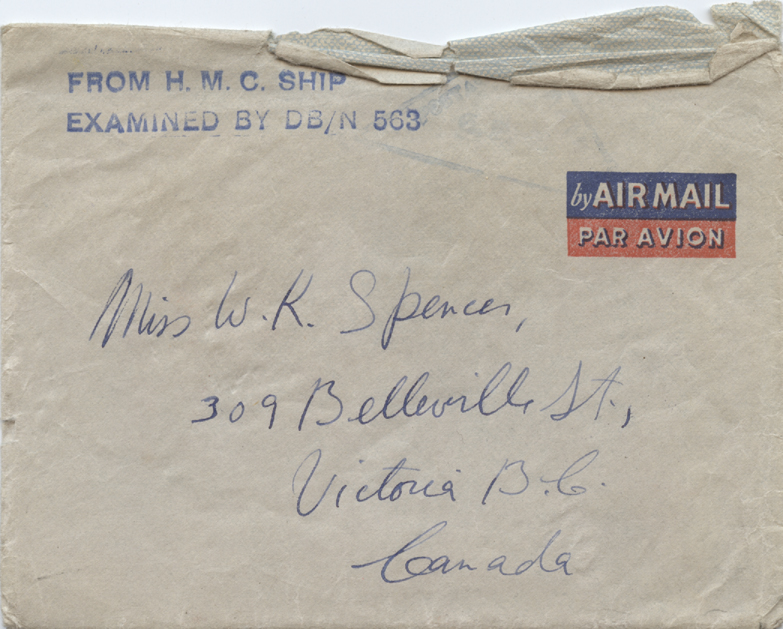 FROM H. M. C. SHIP
EXAMINED BY DB/N 563
by AIR MAIL
PAR AVION
Miss W. K. Spencer,
309 Belleville St.,
Victoria B.C.
Canada